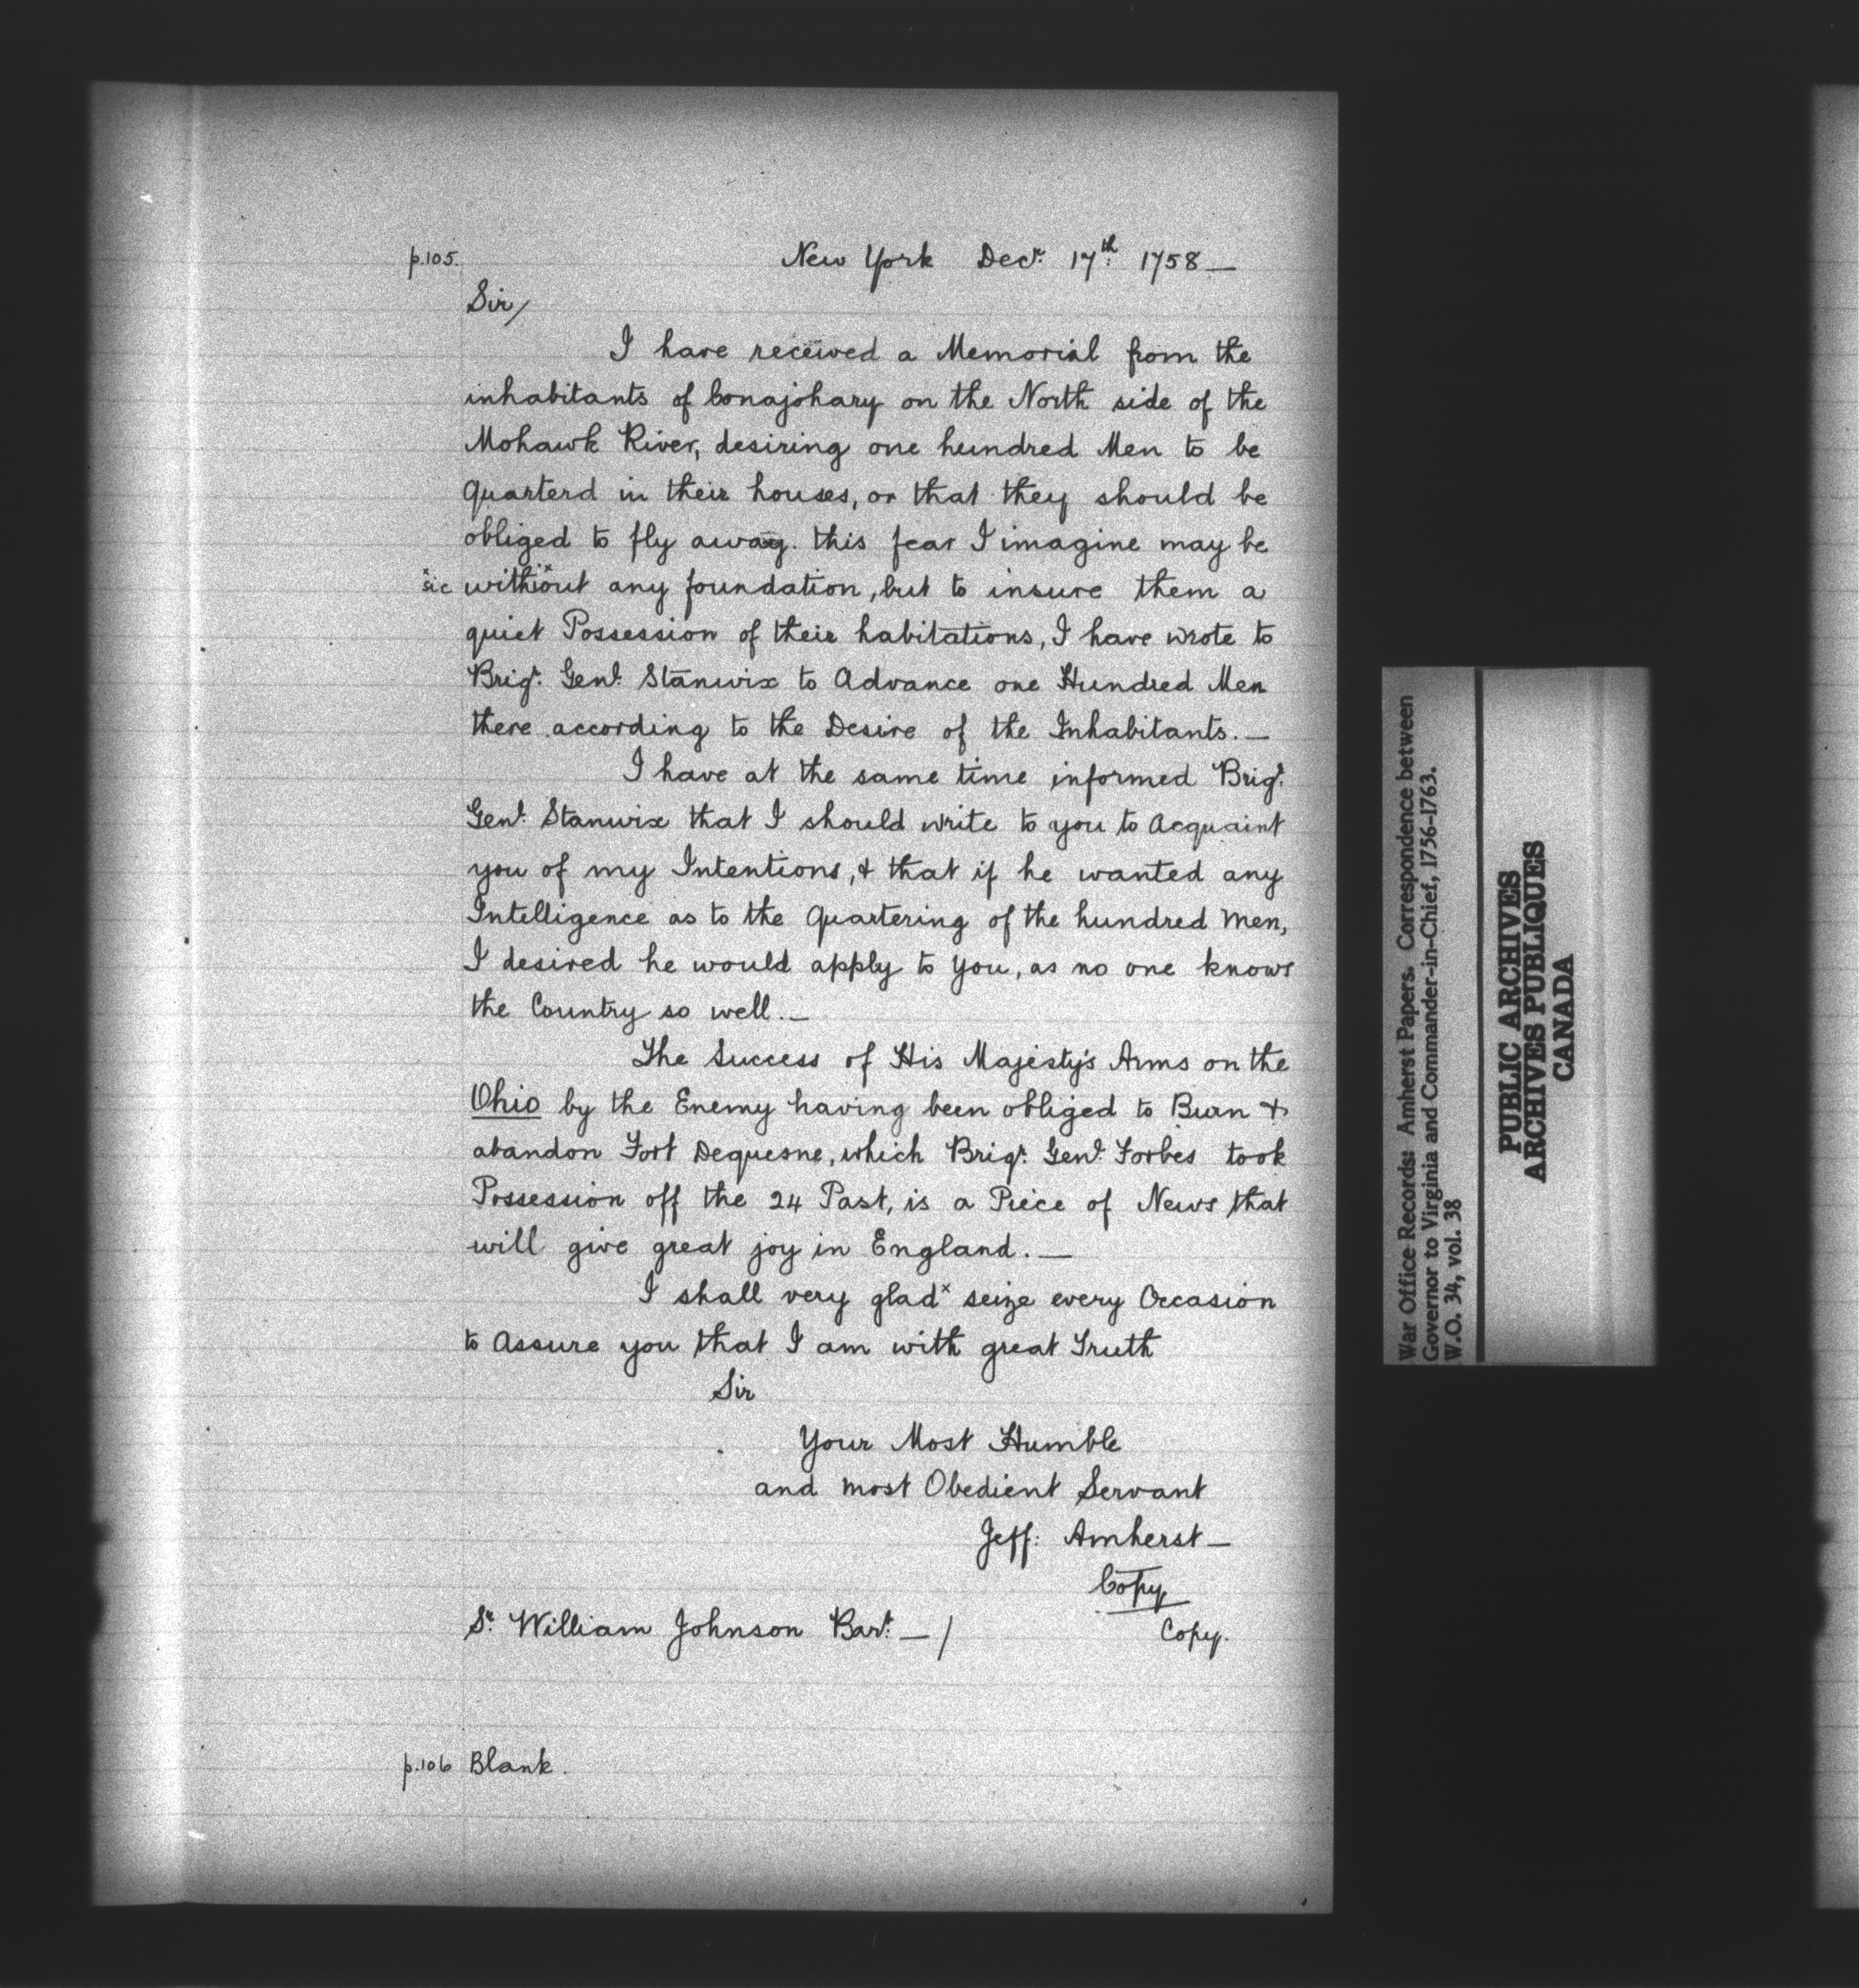 p.105. New York Decr. 17th. 1758 —
Sir/
I have received a Memorial from the
inhabitants of Conajohary on the North side of the
Mohawk River, desiring one hundred Men to be
Quarterd in their houses, or that they should be
obliged to fly away. this fear I imagine may be
x sic without x any foundation, but to insure them a
quiet Possession of their habitations, I have wrote to
Brigr. Genl. Stanwix to Advance one Hundred Men
there according to the Desire of the Inhabitants. —
I have at the same time informed Brigr.
Genl. Stanwix that I should write to you to Acquaint
you of my Intentions, & that if he wanted any
Intelligence as to the Quartering of the hundred Men,
I desired he would apply to you, as no one knows
the Country so well. —
The Success of His Majesty's Arms on the
Ohio by the Enemy having been obliged to Burn &
abandon Fort Dequesne, which Brigr. Genl. Forbes took
Possession off the 24 Past, is a Piece of News that
will give great joy in England. —
I shall very glad x seize every Occasion
to Assure you that I am with great Truth
Sir
Your Most Humble
and most Obedient Servant
Jeff: Amherst —
Copy
Sr. William Johnson Bart. — /
Copy.
p.106 Blank.
War Office Records: Amherst Papers. Correspondence between
Governor to Virginia and Commander-in-Chief, 1756-1763.
W.O. 34, vol. 38
PUBLIC ARCHIVES
ARCHIVES PUBLIQUES
CANADA